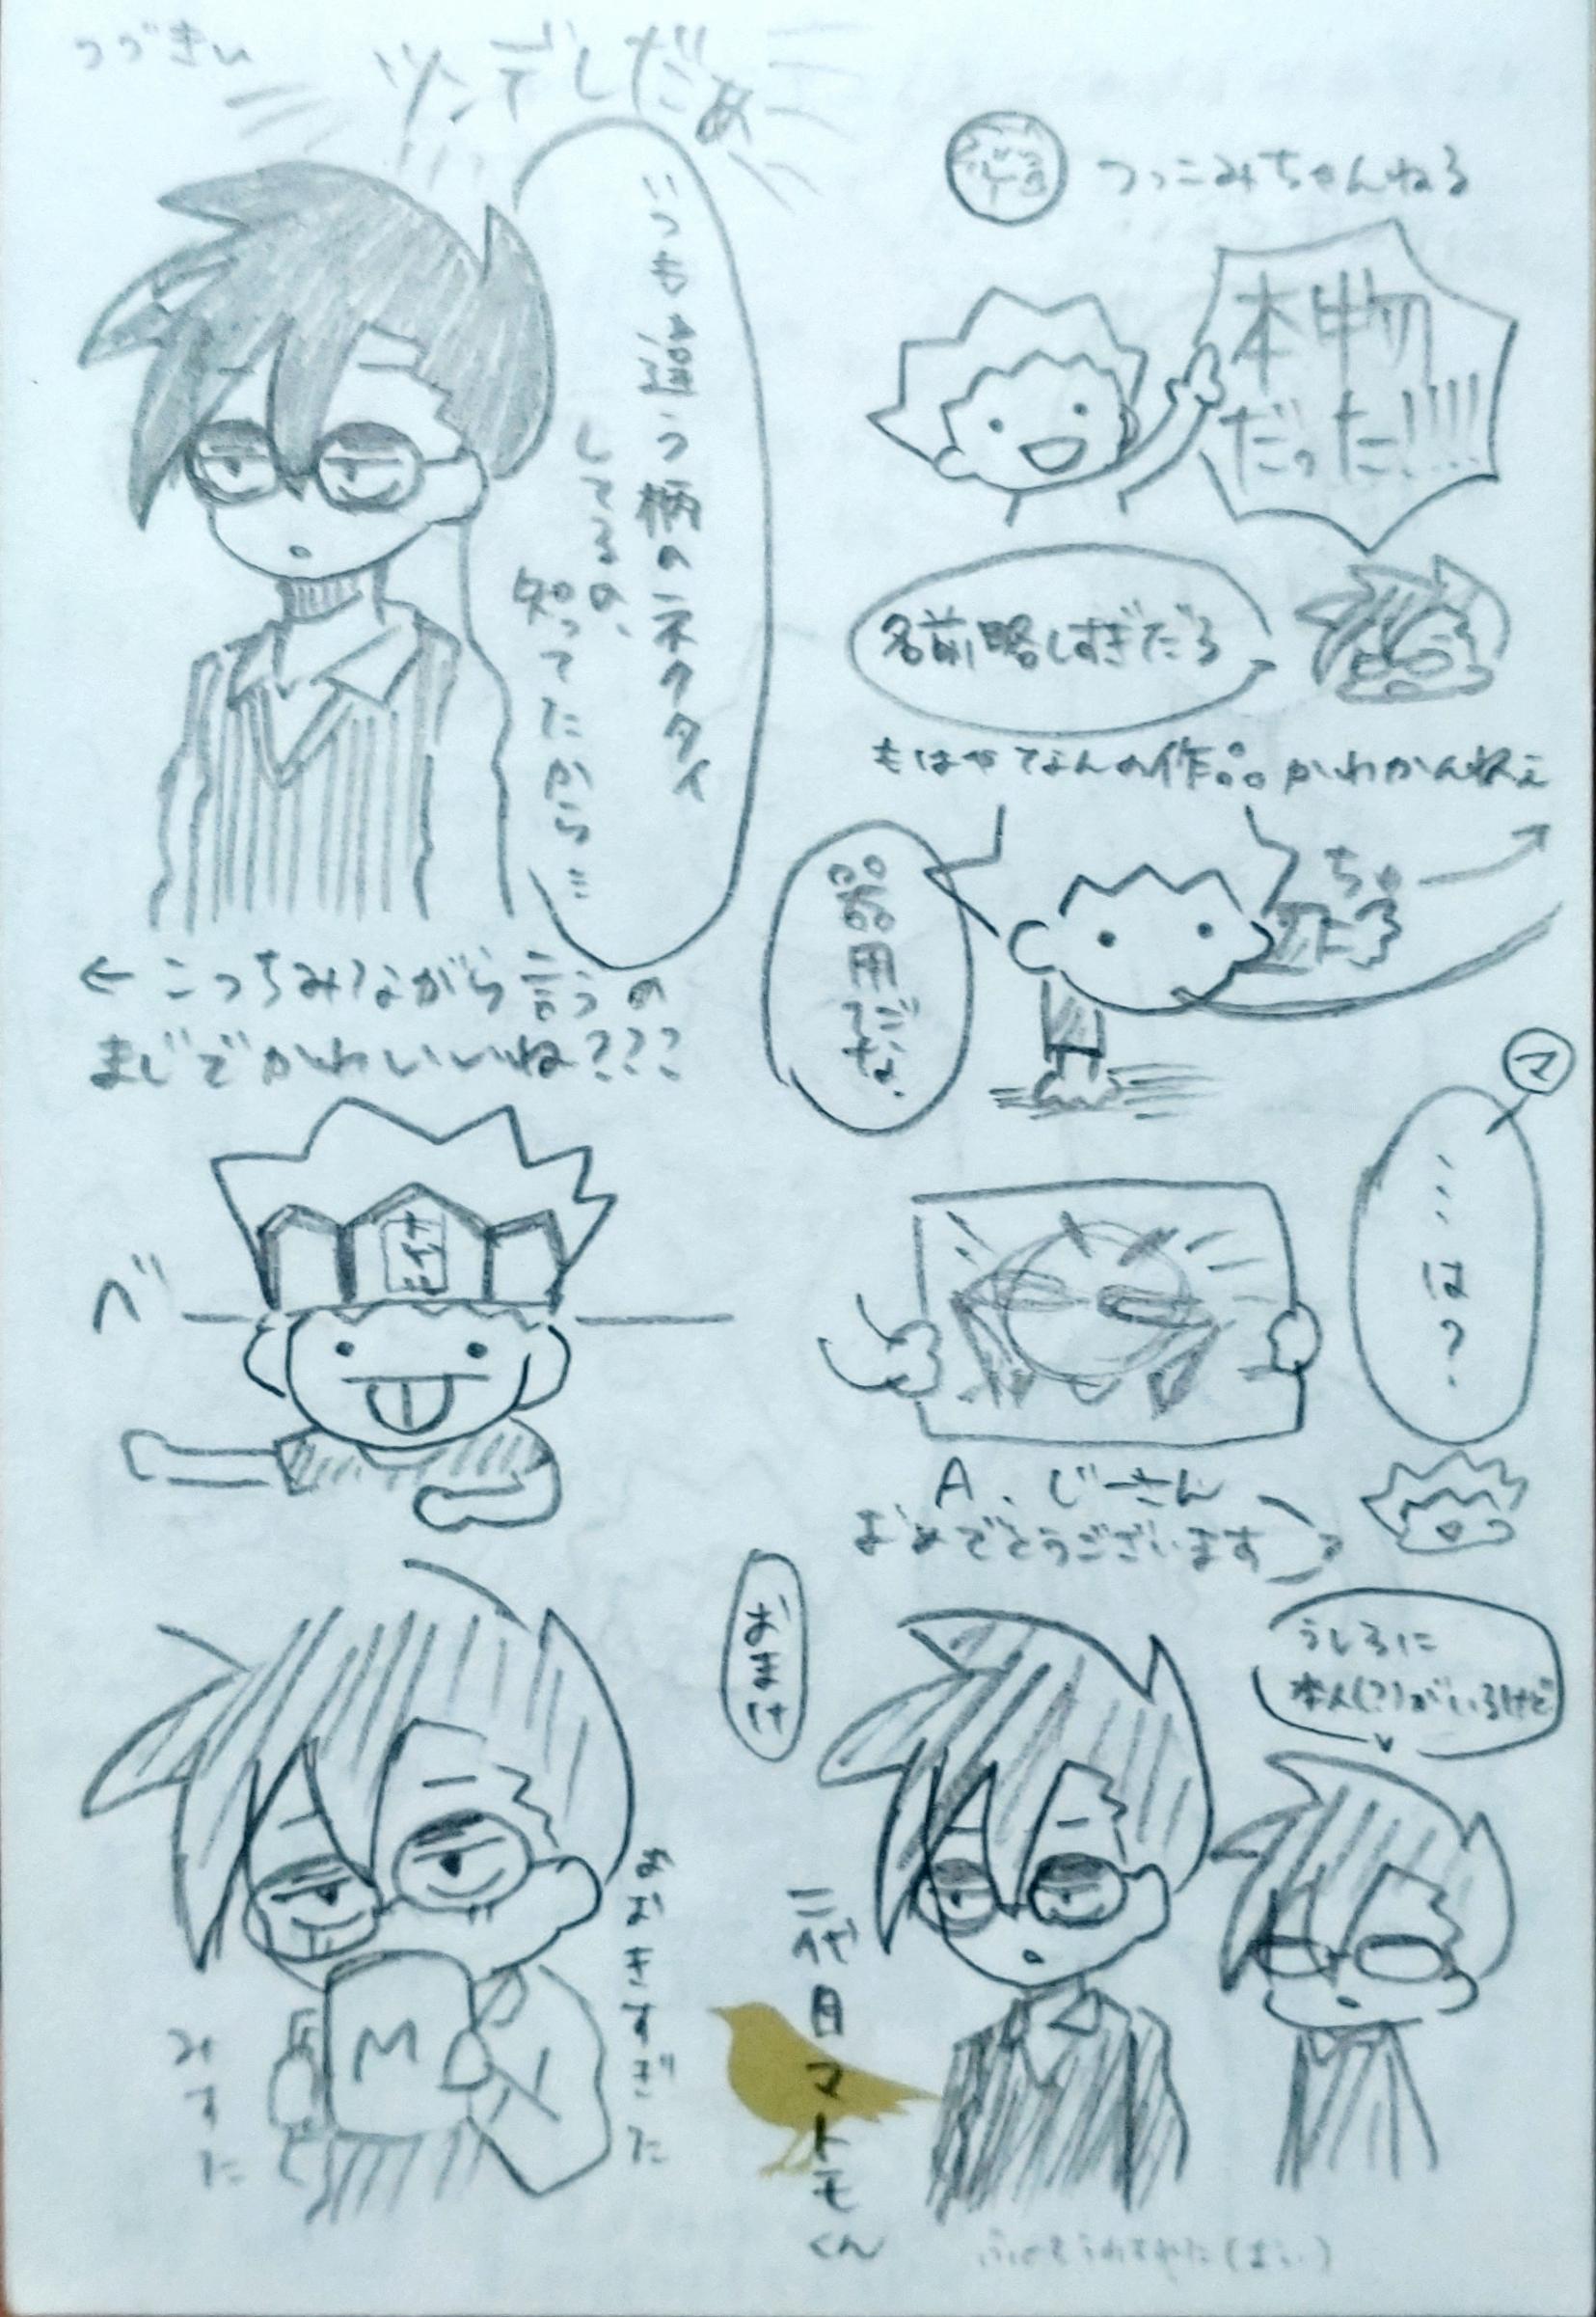 つづきぃ
ツンデレだぁ
いつも違う柄のネクタイ
してるの、
知ってたから…
←こっちみながら言うの
まじでかわいいね???
べ
つっこみちゃんねる
本物
だった!!!!
名前略しすぎだろ
もはやなんの作品かわかんねえ
器用だな.
マ
…は?
A、じーさん
おめでとうございます
おまけ
うしろに
本人(?)がいるけど
二代目マトモくん
M
みずに